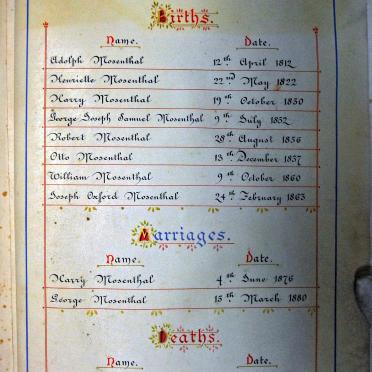 Births.
Name. Date.
Adolph Mosenthal 12th April 1812
Henriette Mosenthal 22nd May 1822
Harry Mosenthal 19th October 1850
George Joseph Samuel Mosenthal 9th July 1852
Robert Mosenthal 28th August 1856
Otto Mosenthal 13th December 1857
William Mosenthal 9th October 1860
Joseph Oxford Mosenthal 24th February 1863
Marriages.
Name. Date.
Harry Mosenthal 4th June 1876
George Mosenthal 15th March 1880
Deaths.
Name. Date.